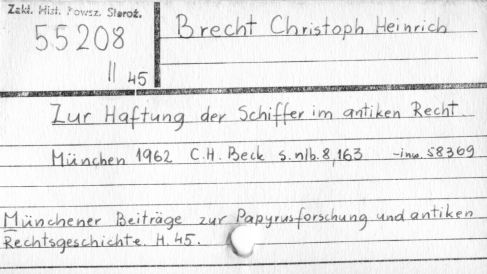 Zakł. Hist. Powsz. Staroż.
55208
II 45
Brecht Christoph Heinrich
Zur Haftung der Schiffer im antiken Recht
München 1962 C.H. Beck s. nlb. 8, 163 -inw. 58369
Münchener Beiträge zur Papyrusforschung und antiken
Rechtsgeschichte. H. 45.